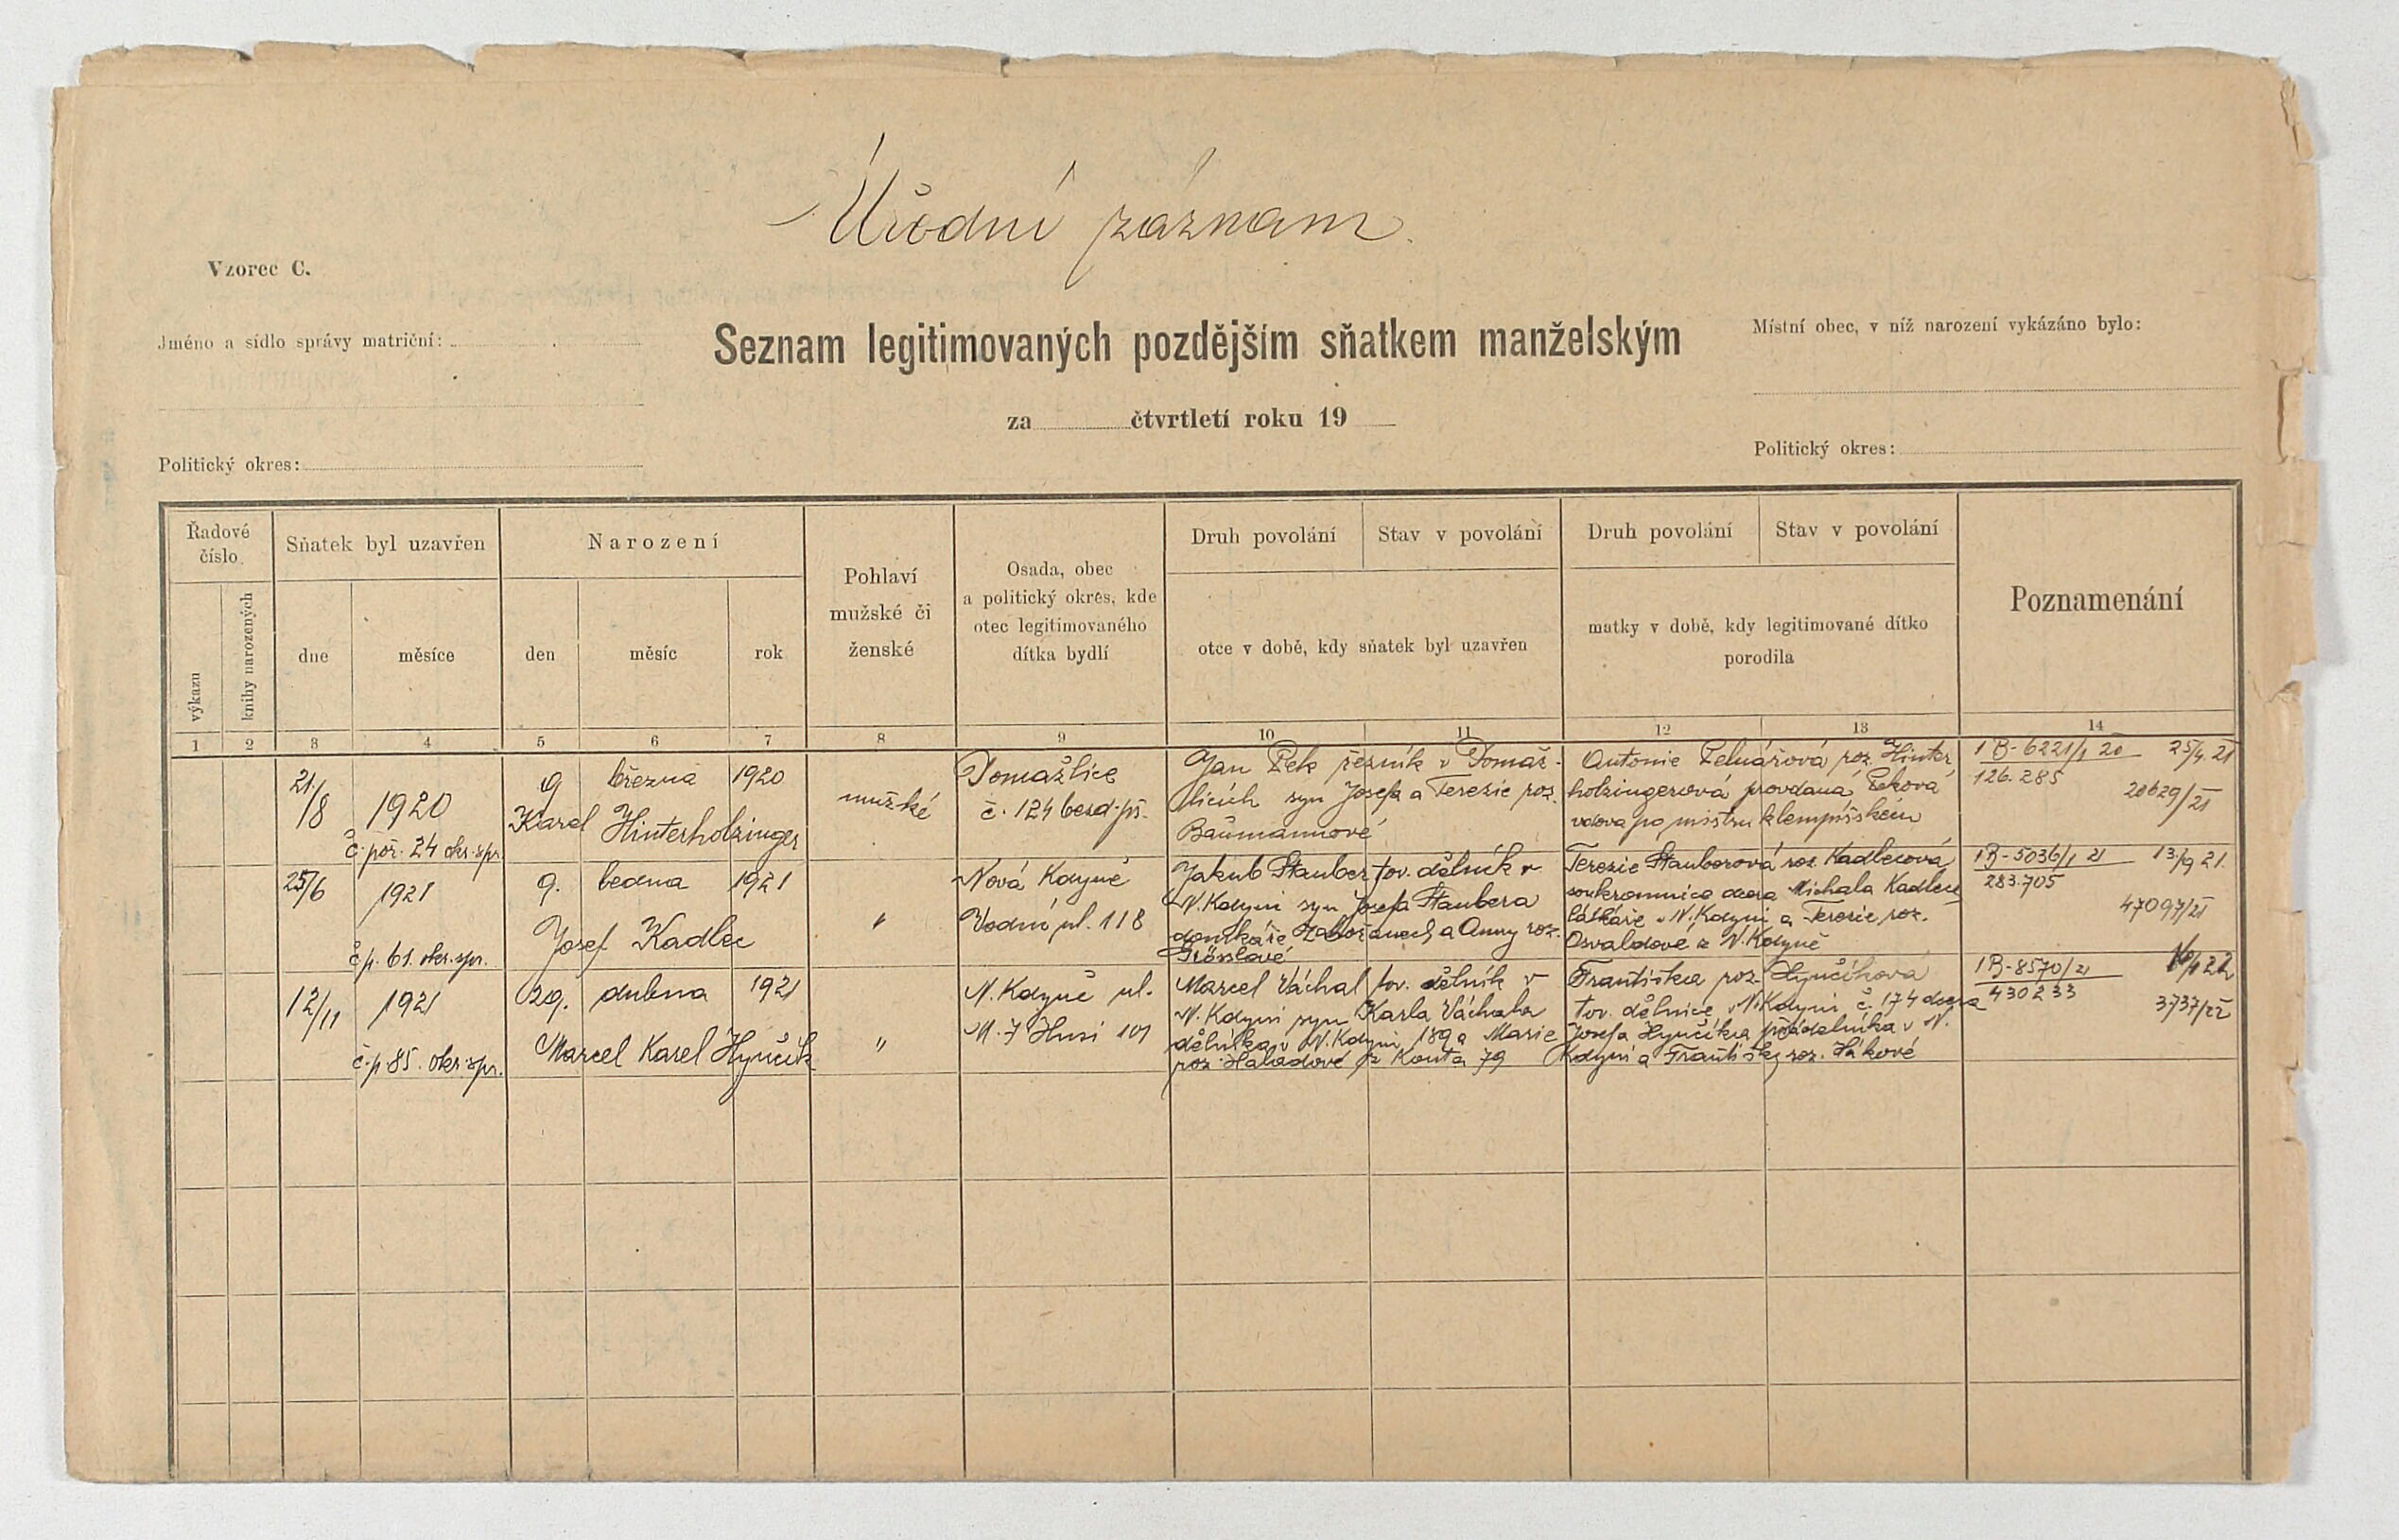 Úřodní záznam.
Vzorec C.
Jméno a sídlo správy matriční:
Seznam legitimovaných pozdějším sňatkem manželským
Místní obec, v níž narození vykázáno bylo:
za čtvrtletí roku 19
Politický okres:
Politický okres:
Řadové číslo
Sňatek byl uzavřen
Narození
Pohlaví mužské či ženské
Osada, obec a politický okres, kde otec legitimovaného dítka bydlí
Druh povolání
Stav v povolání
Druh povolání
Stav v povolání
Poznamenání
výkazu
knihy narozených
dne
měsíce
den
měsíc
rok
otce v době, kdy sňatek byl uzavřen
matky v době, kdy legitimované dítko porodila
1 2 3 4 5 6 7 8 9 10 11 12 13 14
21/8 1920
č. poř. 24 okr. spr.
9 března 1920
Karel Hinterholzinger
mužské
Domažlice
č. 124 besd. př.
Jan Pek řezník v Domaž-
licích syn Josefa a Terezie roz.
Baumannové
Antonie roz. Hinter
holzingerová provdaná Peková
vdova po mistru klempířském
1 B-6221/1 20 25/4 21
126.285
20629/21
25/6 1921
č.p. 61. okr. spr.
9. ledna 1921
Josef Kadlec
"
Nová Kdyně
Vodní ul. 118
Jakub Stauber tov. dělník v
N. Kdyni syn Josefa Staubera
domkáře a Anny roz.
Terezie Stauberová roz. Kadlecová
soukromnice dcera Michala Kadlece
v N. Kdyni a Terezie roz.
Osvaldové z N. Kdyně
1B-5036/1 21 13/9 21.
283.705
47097/21
12/11 1921
č.p. 85. okr. spr.
29. dubna 1921
Marcel Karel Hynčík
"
N. Kdyně ul.
M. J Husi 101
Marcel Váchal tov. dělník v
N. Kdyni syn Karla Váchala
dělníka v N. Kdyni 189 a Marie
roz. Haladové z Kouta 79
Františka roz. Hynčíková
tov. dělnice v N. Kdyni č. 174 dcera
Josefa Hynčíka v N.
Kdyni a Františky roz. Hákové
1B-8570/21
430233
3737/22